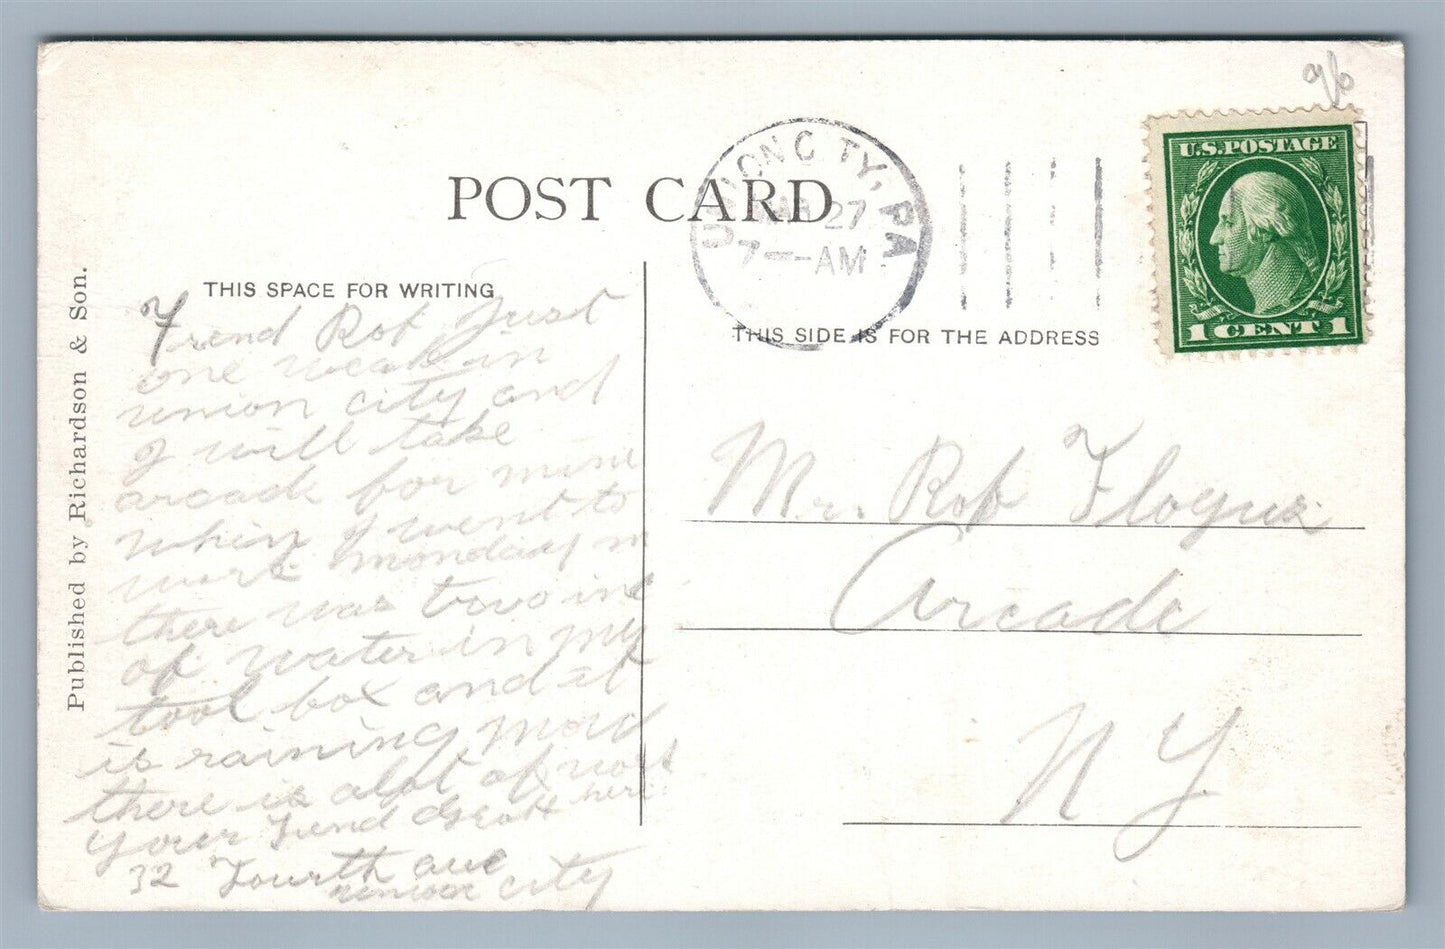 96
U.S. POSTAGE
1 CENT 1
UNION CITY, PA
MAR 27
7—AM
POST CARD
THIS SPACE FOR WRITING
THIS SIDE IS FOR THE ADDRESS
Published by Richardson & Son.
Friend Rob Just
one weak in
union city and
I will take
arcade for mine
when I went to
work monday m
there was two in
of water in my
tool box and it
is raining now
there is alot of work
here
your Friend
32 Fourth ave
union city
Mr. Rob
Arcade
N Y